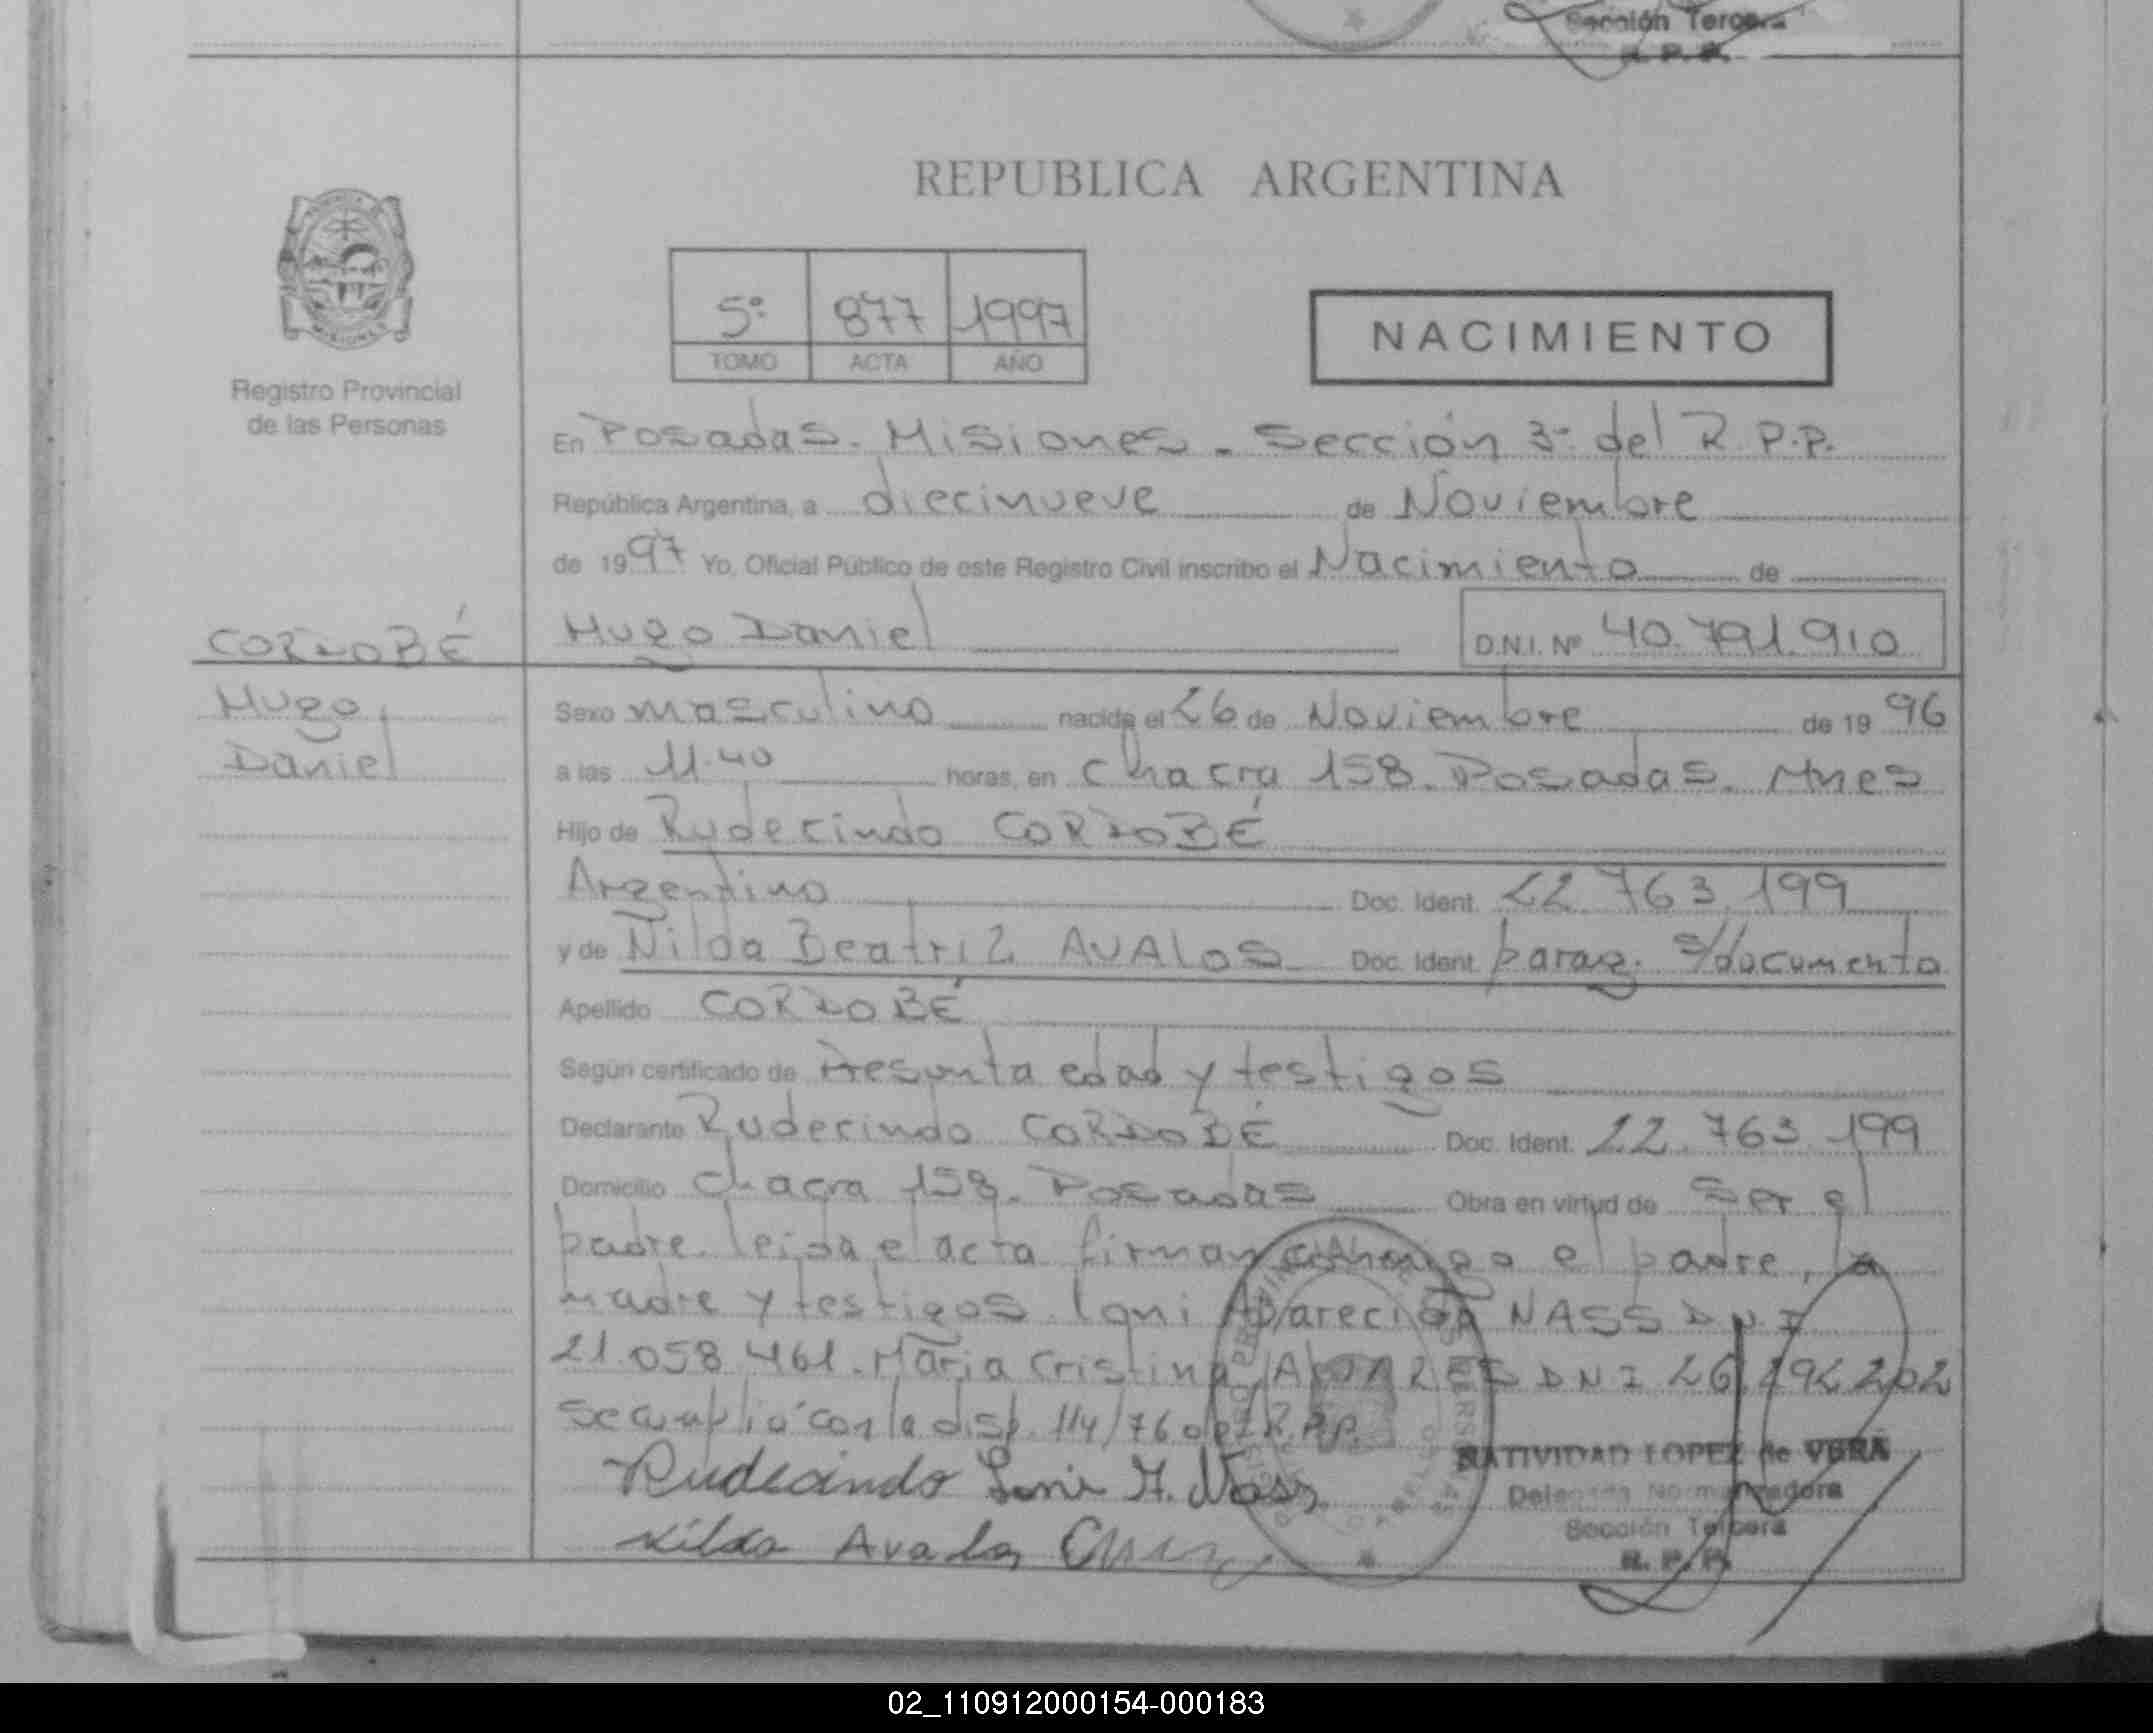 Sección Tercera
R. P. P.
REPUBLICA ARGENTINA
5º 877 1997
TOMO ACTA AÑO
NACIMIENTO
Registro Provincial
de las Personas
En Posadas. Misiones. Sección 3ª del R.P.P.
República Argentina, a diecinueve de Noviembre
de 1997 Yo, Oficial Público de este Registro Civil inscribo el Nacimiento de
CORDOBÉ Hugo Daniel D.N.I. Nº 40.791.910
Hugo
Daniel
Sexo masculino nacido el 26 de Noviembre de 1996
a las 11.40 horas, en chacra 158. Posadas. Mnes
Hijo de Rudecindo CORDOBÉ
Argentino Doc. Ident. 22.763.199
y de Nilda Beatriz AVALOS Doc. Ident. parag. s/documento
Apellido CORDOBÉ
Según certificado de Presunta edad y testigos
Declarante Rudecindo CORDOBÉ Doc. Ident. 22.763.199
Domicilio chacra 158. Posadas Obra en virtud de ser el
padre. leida el acta firman conmigo el padre, la
madre y testigos Aparecida NASS D.N.I
21.058.461. Maria Cristina DNI
Se cumplió con la disp. 114/76 del R.P.P.
Rudecindo Nass
Nilda Avalos
NATIVIDAD LOPEZ de VERA
Delegada Normalizadora
Sección Tercera
R. P. P.
02_110912000154-000183